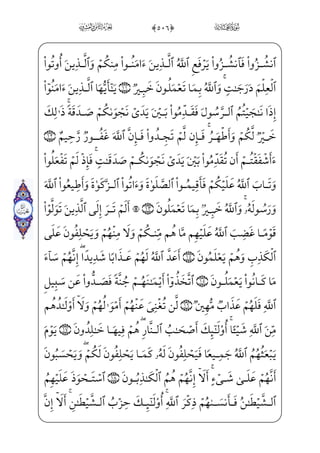 ﴿٥٠٦﴾
ٱنشُزُوا۟ فَٱنشُزُوا۟ يَرْفَعِ ٱللَّهُ ٱلَّذِينَ ءَامَنُوا۟ مِنكُمْ وَٱلَّذِينَ أُوتُوا۟
ٱلْعِلْمَ دَرَجَٰتٍ ۚ وَٱللَّهُ بِمَا تَعْمَلُونَ خَبِيرٌ ﴿١١﴾ يَٰٓأَيُّهَا ٱلَّذِينَ ءَامَنُوٓا۟
إِذَا نَٰجَيْتُمُ ٱلرَّسُولَ فَقَدِّمُوا۟ بَيْنَ يَدَىْ نَجْوَىٰكُمْ صَدَقَةً ۚ ذَٰلِكَ
خَيْرٌ لَّكُمْ وَأَطْهَرُ ۚ فَإِن لَّمْ تَجِدُوا۟ فَإِنَّ ٱللَّهَ غَفُورٌ رَّحِيمٌ ﴿١٢﴾
ءَأَشْفَقْتُمْ أَن تُقَدِّمُوا۟ بَيْنَ يَدَىْ نَجْوَىٰكُمْ صَدَقَٰتٍ ۚ فَإِذْ لَمْ تَفْعَلُوا۟
وَتَابَ ٱللَّهُ عَلَيْكُمْ فَأَقِيمُوا۟ ٱلصَّلَوٰةَ وَءَاتُوا۟ ٱلزَّكَوٰةَ وَأَطِيعُوا۟ ٱللَّهَ
وَرَسُولَهُۥ ۚ وَٱللَّهُ خَبِيرٌۢ بِمَا تَعْمَلُونَ ﴿١٣﴾ ۞ أَلَمْ تَرَ إِلَى ٱلَّذِينَ تَوَلَّوْا۟
قَوْمًا غَضِبَ ٱللَّهُ عَلَيْهِم مَّا هُم مِّنكُمْ وَلَا مِنْهُمْ وَيَحْلِفُونَ عَلَى
ٱلْكَذِبِ وَهُمْ يَعْلَمُونَ ﴿١٤﴾ أَعَدَّ ٱللَّهُ لَهُمْ عَذَابًا شَدِيدًا ۖ إِنَّهُمْ سَآءَ
مَا كَانُوا۟ يَعْمَلُونَ ﴿١٥﴾ ٱتَّخَذُوٓا۟ أَيْمَٰنَهُمْ جُنَّةً فَصَدُّوا۟ عَن سَبِيلِ
ٱللَّهِ فَلَهُمْ عَذَابٌ مُّهِينٌ ﴿١٦﴾ لَّن تُغْنِىَ عَنْهُمْ أَمْوَٰلُهُمْ وَلَآ أَوْلَٰدُهُم
مِّنَ ٱللَّهِ شَيْـًٔا ۚ أُو۟لَٰٓئِكَ أَصْحَٰبُ ٱلنَّارِ ۖ هُمْ فِيهَا خَٰلِدُونَ ﴿١٧﴾ يَوْمَ
يَبْعَثُهُمُ ٱللَّهُ جَمِيعًا فَيَحْلِفُونَ لَهُۥ كَمَا يَحْلِفُونَ لَكُمْ ۖ وَيَحْسَبُونَ
أَنَّهُمْ عَلَىٰ شَىْءٍ ۚ أَلَآ إِنَّهُمْ هُمُ ٱلْكَٰذِبُونَ ﴿١٨﴾ ٱسْتَحْوَذَ عَلَيْهِمُ
ٱلشَّيْطَٰنُ فَأَنسَىٰهُمْ ذِكْرَ ٱللَّهِ ۚ أُو۟لَٰٓئِكَ حِزْبُ ٱلشَّيْطَٰنِ ۚ أَلَآ إِنَّ